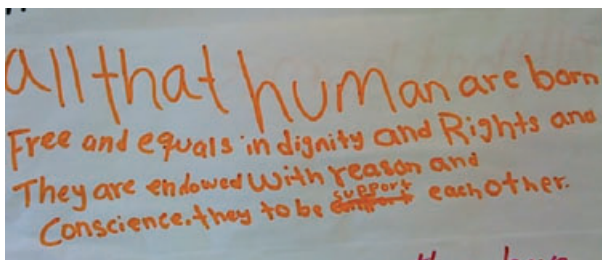 all that human are born
Free and equals in dignity and Rights and
They are endowed With reason and
Conscience. they to be support each other.